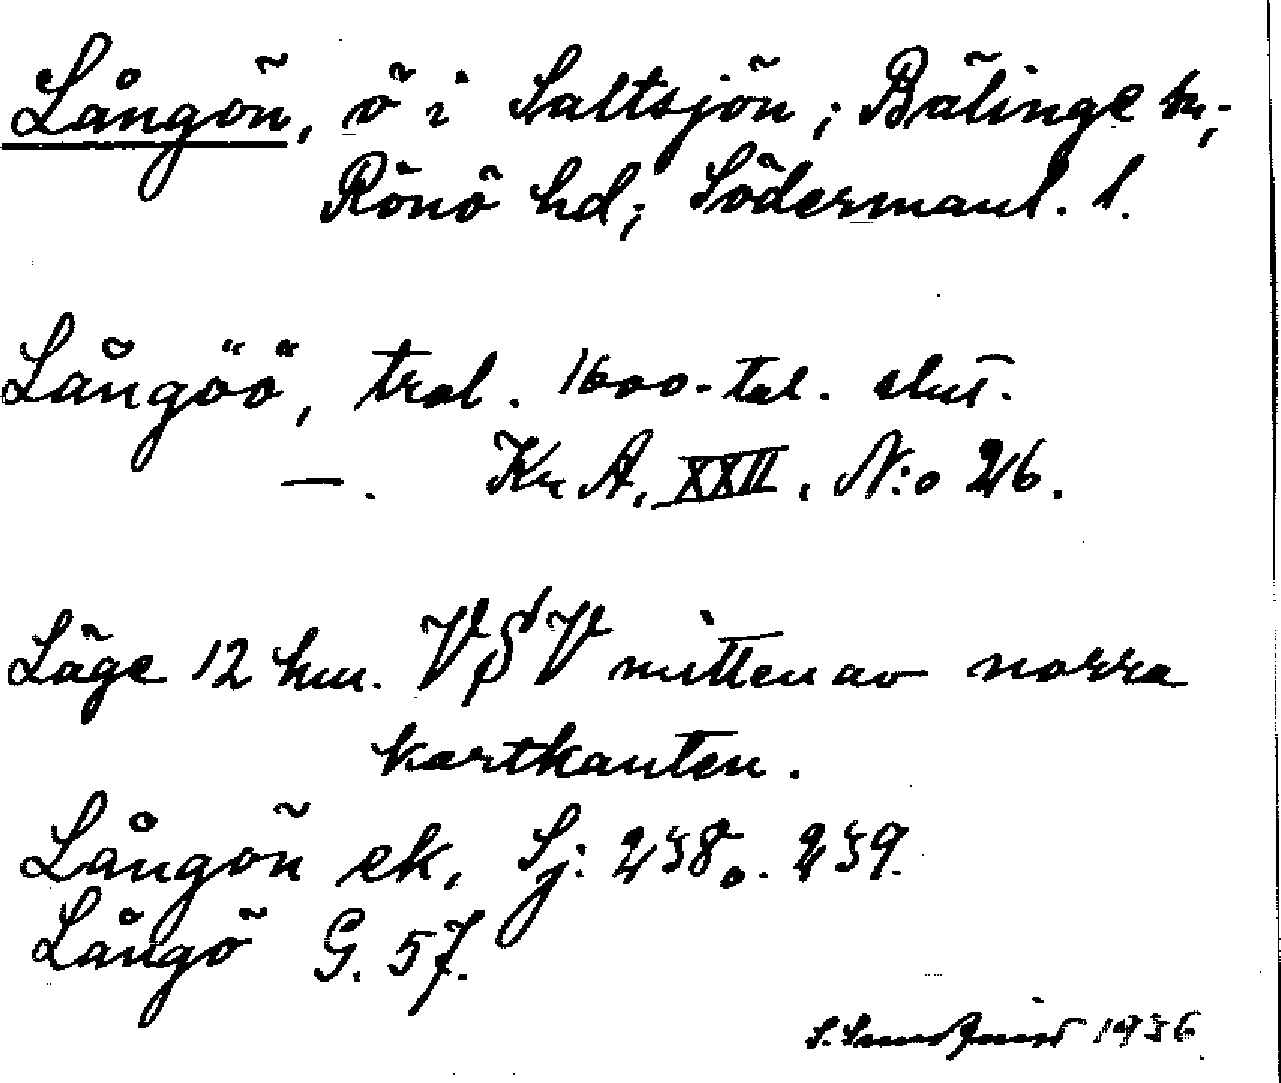 Långön, ö i Saltsjön; Bälinge sn,
Rönö hd; Södermanl. l.
Långöö, trol. 1600-tal. slut.
—. Kr A, XXII, N:o 26.
Läge 12 km. VSV mitten av norra
kartkanten.
Långön ek, Sj: 238o. 239.
Långö G. 57.
S. Sundquist 1936